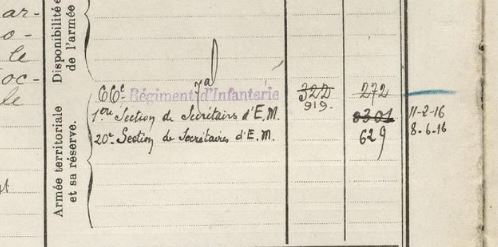 ar-
o-
le
oc-
le
Disponibilité e
de l'armée
Armée territoriale
et sa réserve.
66e Régiment d'Infanterie 322 272
1ère Section de Secrétaires d'E.M. 919. 8301 11-2-16
20e Section de Secrétaires d'E.M. 629 8-6-16